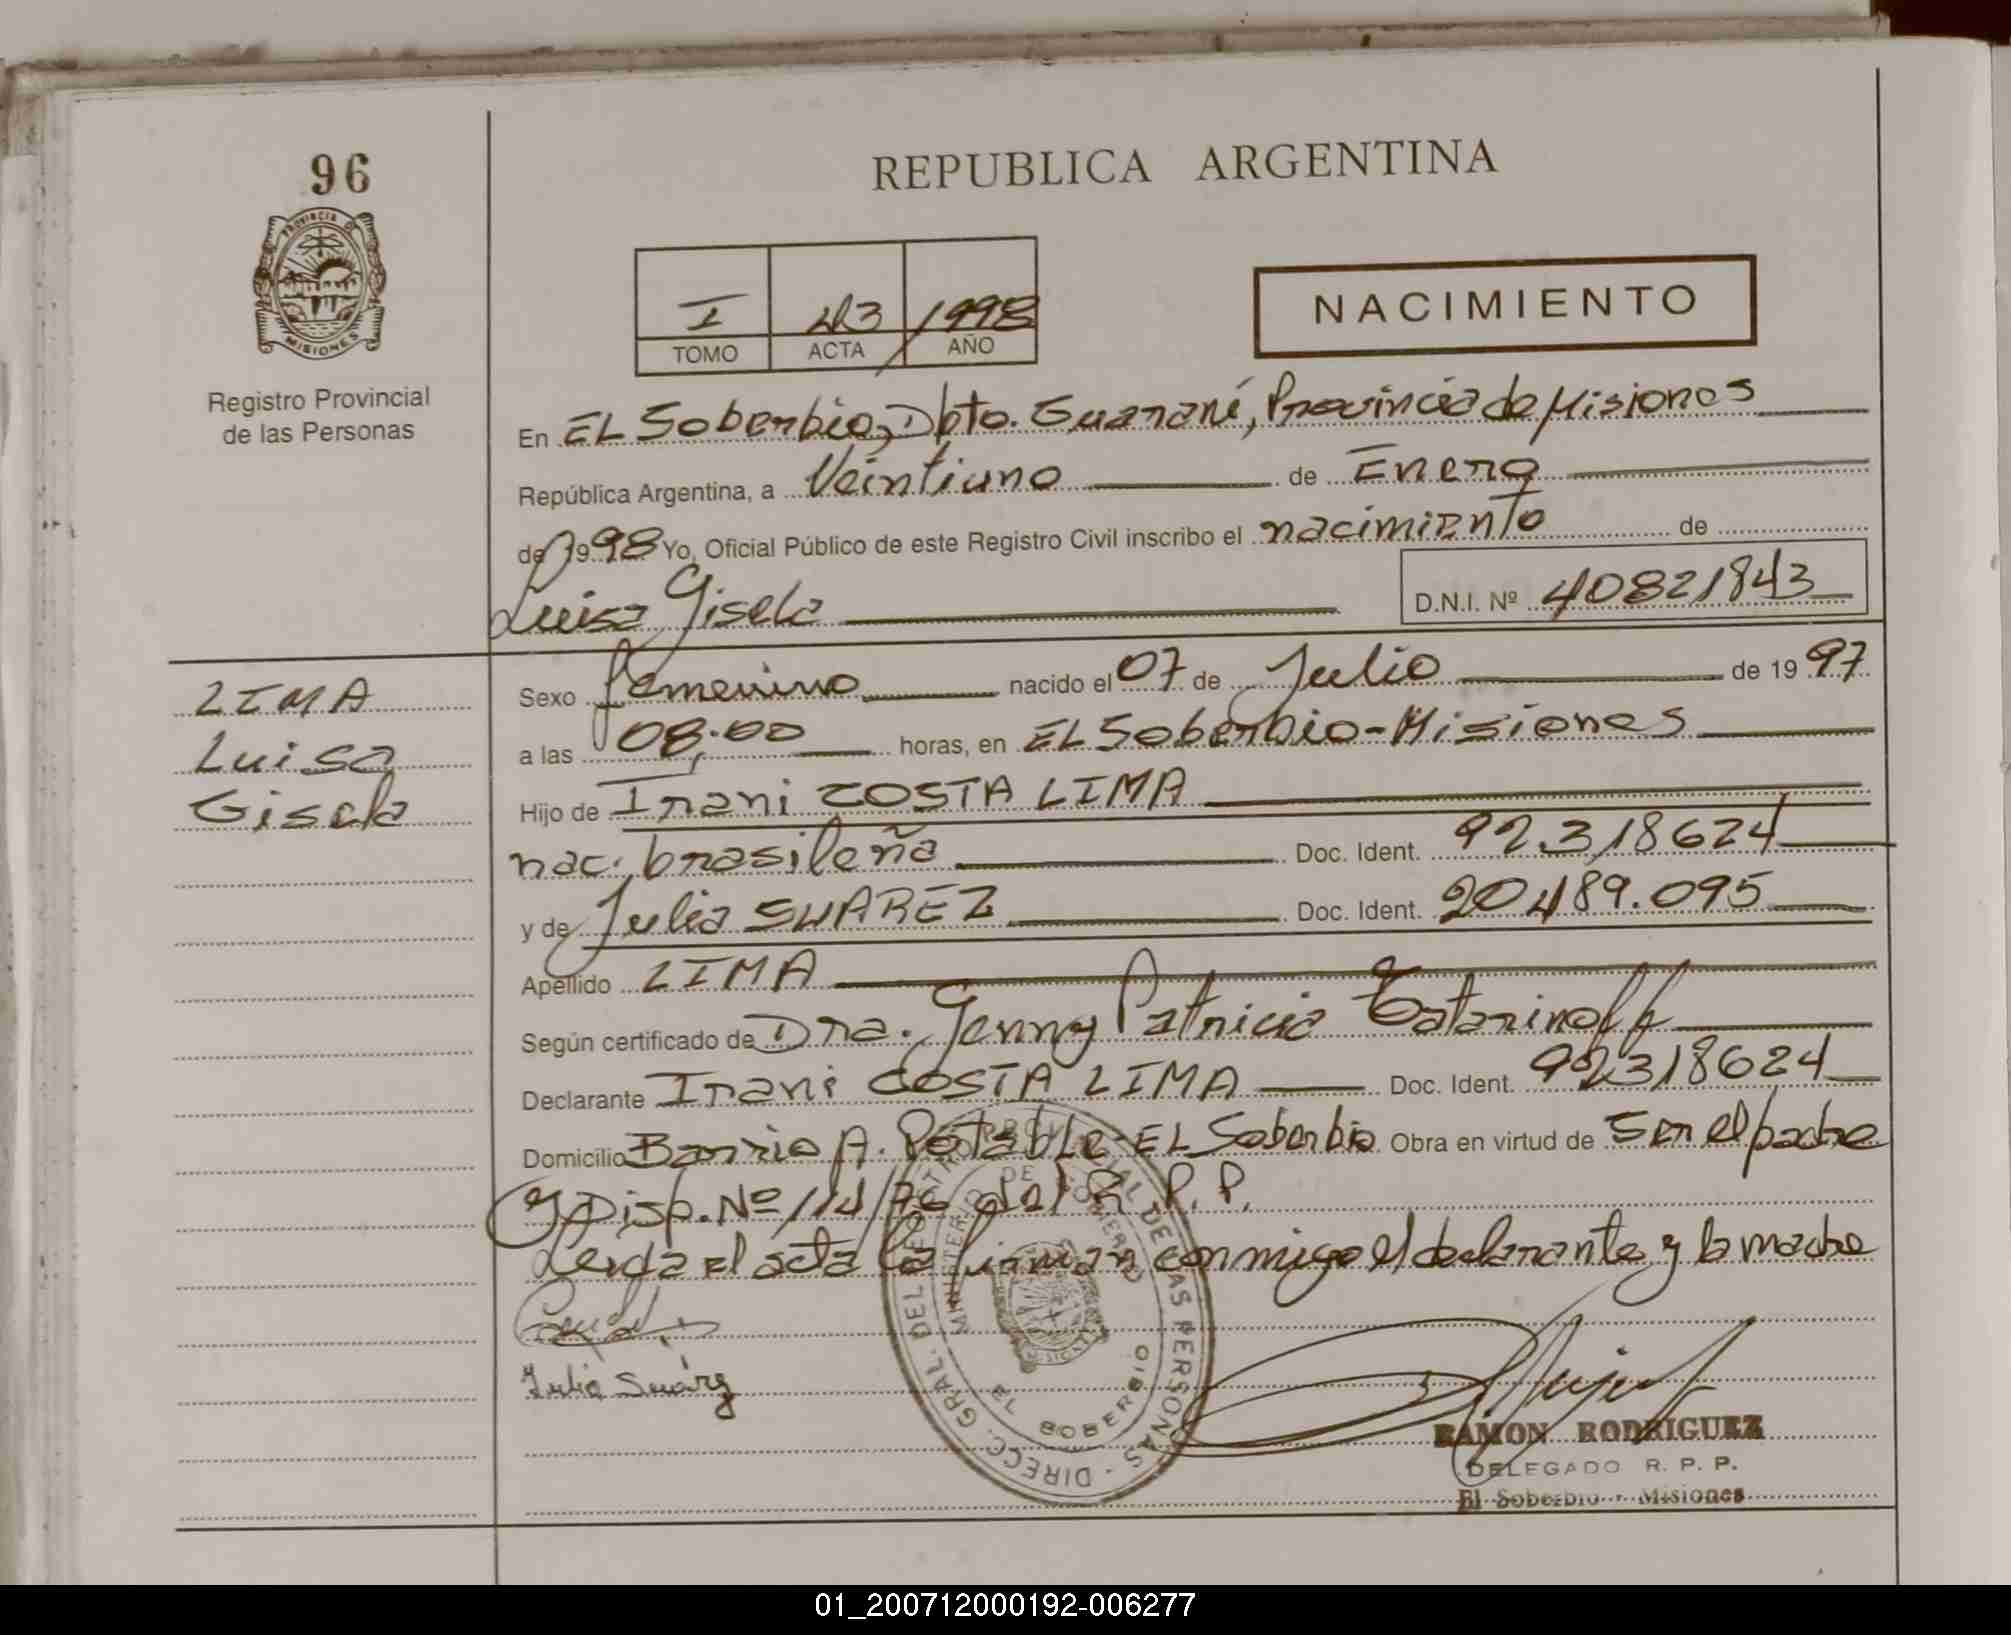 96
PROVINCIA DE
MISIONES
Registro Provincial
de las Personas
REPUBLICA ARGENTINA
I 1998
TOMO ACTA AÑO
NACIMIENTO
En EL Soberbio, Dpto. Guaraní, Provincia de Misiones
República Argentina, a Veintiuno de Enero
de 1998 Yo, Oficial Público de este Registro Civil inscribo el nacimiento de
Luisa Gisela
D.N.I. Nº 40821843
LIMA
Luisa
Gisela
Sexo femenino nacido el 07 de Julio de 1997
a las 08:00 horas, en EL Soberbio-Misiones
Hijo de Irani COSTA LIMA
nac. brasileña Doc. Ident. 92.318624
y de Julia SUAREZ Doc. Ident. 20489.095
Apellido LIMA
Según certificado de Dra. Jenny Patricia Tatarinoff
Declarante Irani COSTA LIMA Doc. Ident. 92318624
Domicilio Barrio A. Potable-EL Soberbio Obra en virtud de Ser el padre
y Disp. Nº 114/96 del R. P. P.
Leida el acta la firman conmigo el declarante y la madre
Julia Suárez
DIRECC. GRAL. DEL REGISTRO PROVINCIAL DE LAS PERSONAS
MINISTERIO DE GOBIERNO
EL SOBERBIO
RAMON RODRIGUEZ
DELEGADO R. P. P.
El Soberbio - Misiones
01_200712000192-006277